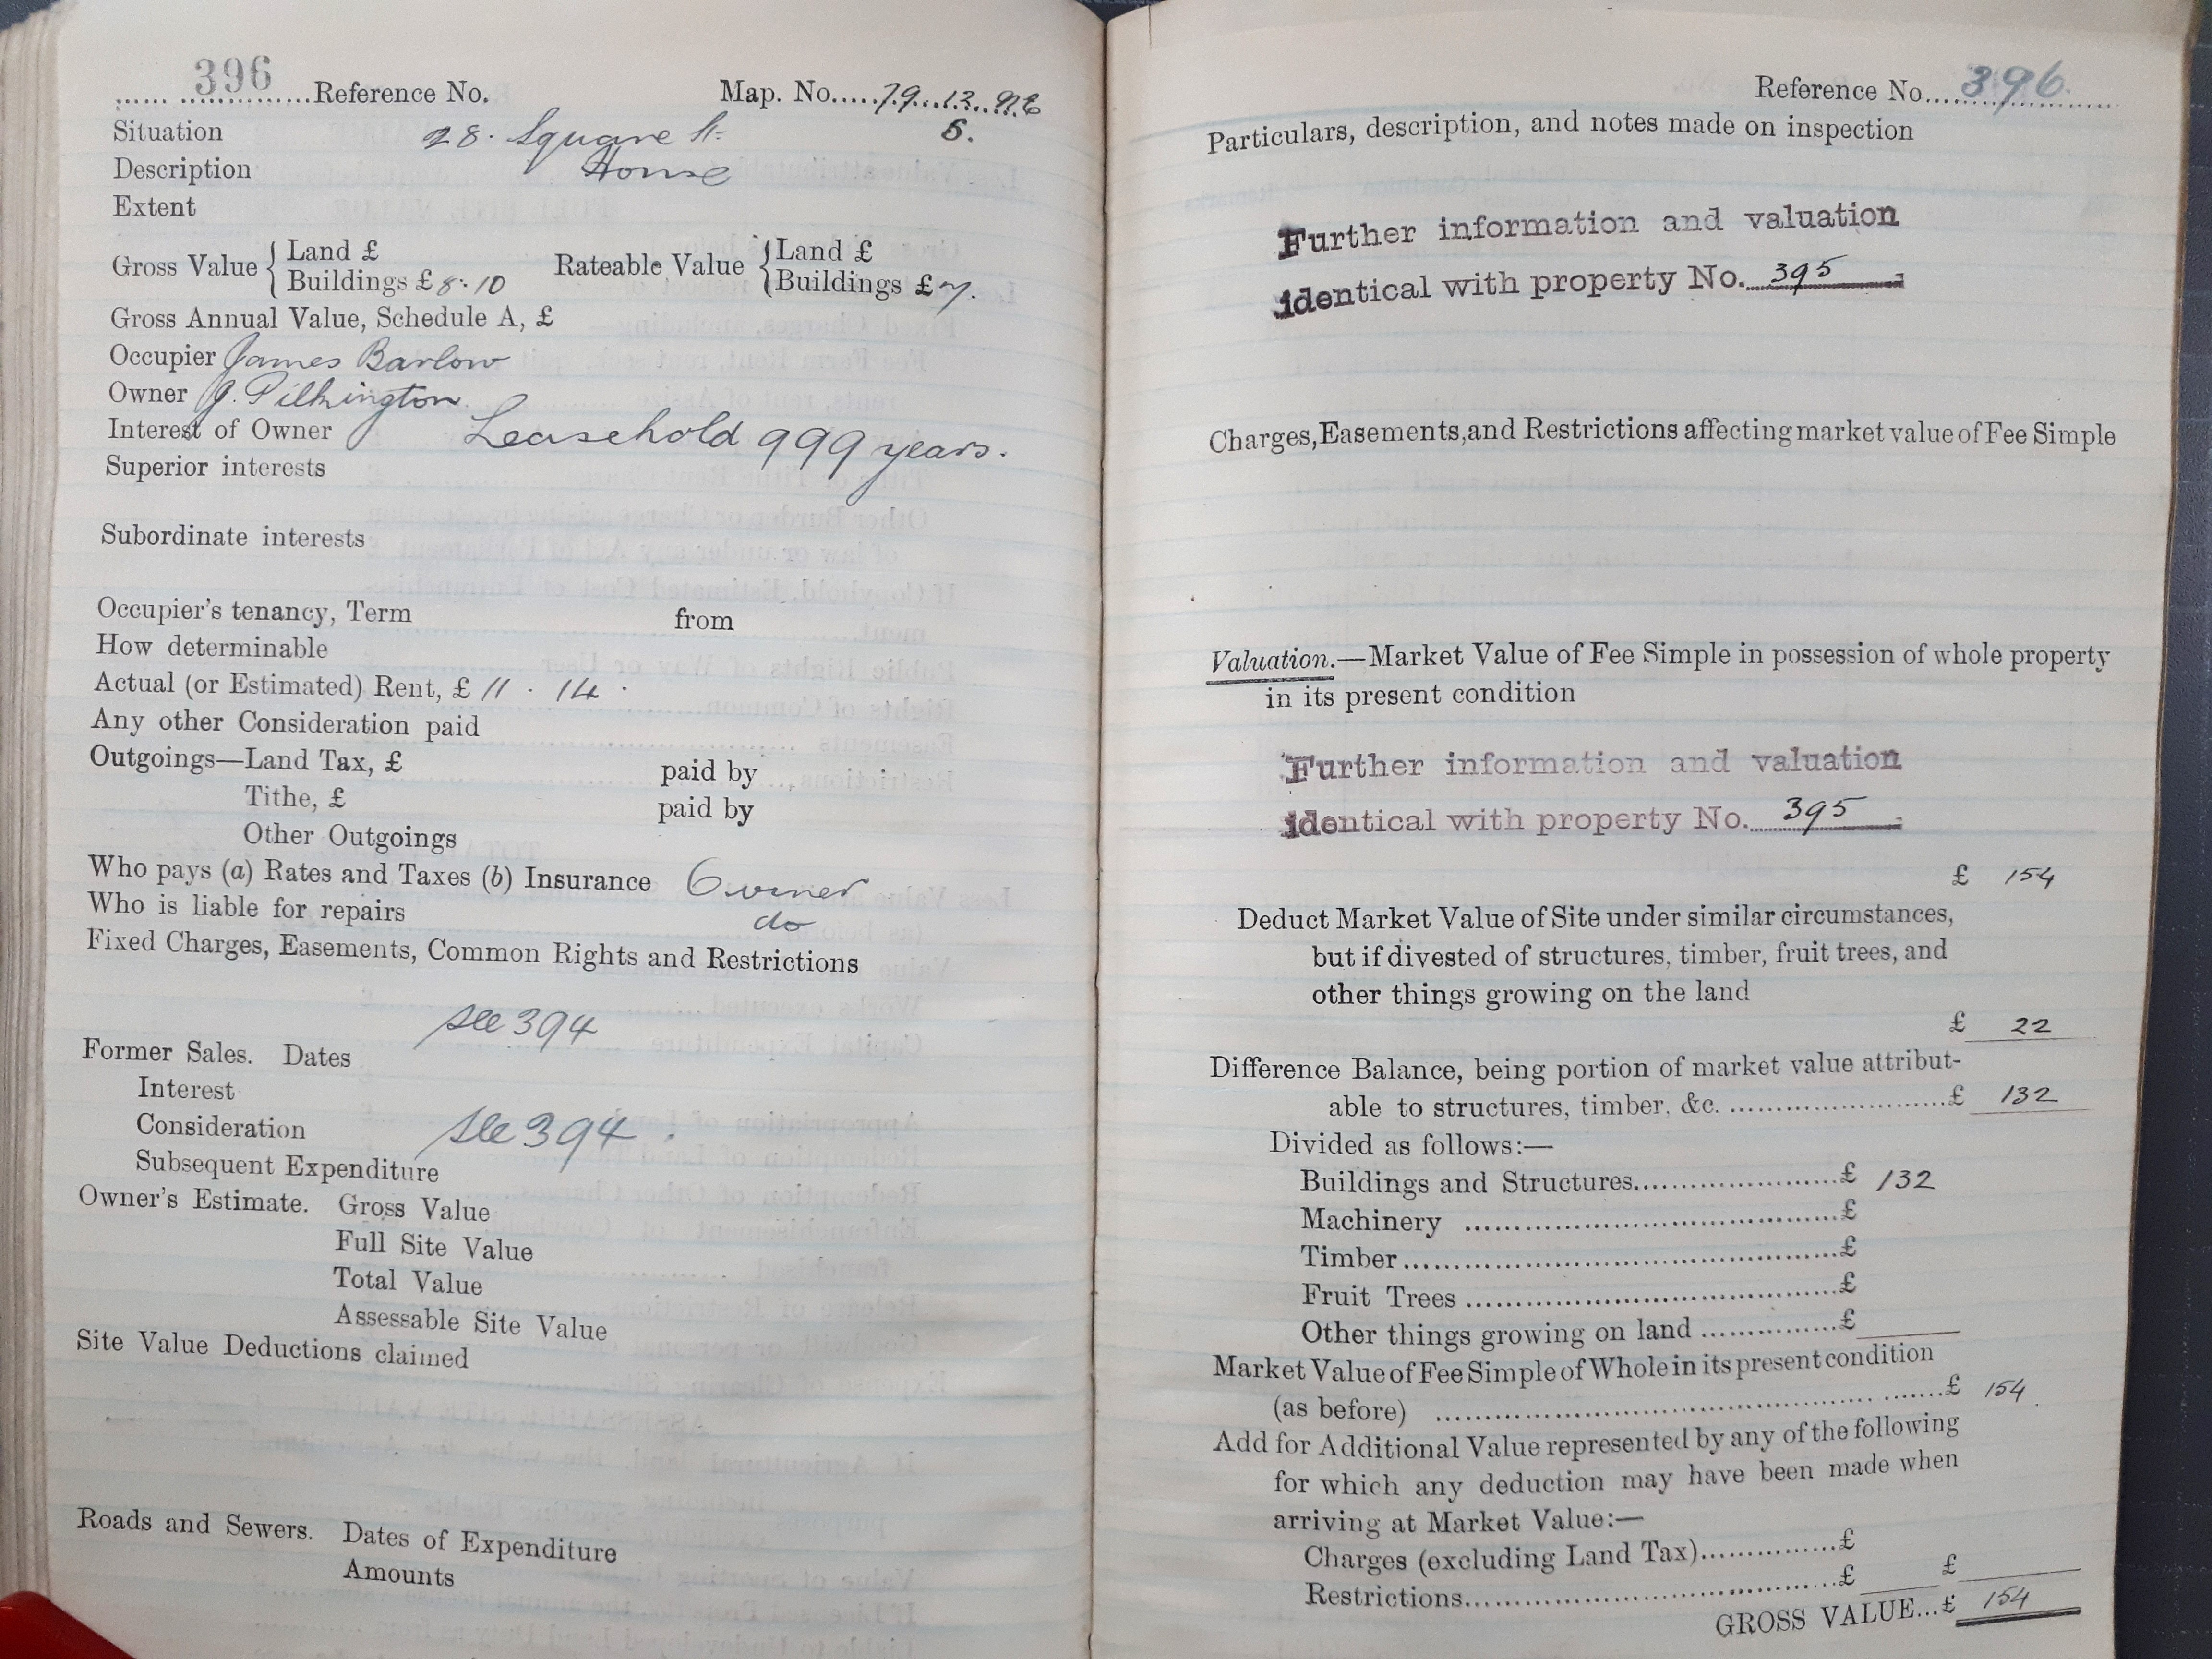 396
Reference No. Map. No. 79.13. N.E
Situation 28. Square St. 5.
Description House
Extent
Gross Value { Land £ Rateable Value { Land £
Buildings £ 8.10 Buildings £ 7.
Gross Annual Value, Schedule A, £
Occupier James Barlow
Owner J. Pilkington.
Interest of Owner Leasehold 999 years.
Superior interests
Subordinate interests
Occupier's tenancy, Term from
How determinable
Actual (or Estimated) Rent, £ 11 . 14 .
Any other Consideration paid
Outgoings—Land Tax, £ paid by
Tithe, £ paid by
Other Outgoings
Who pays (a) Rates and Taxes (b) Insurance Owner
Who is liable for repairs do
Fixed Charges, Easements, Common Rights and Restrictions
see 394
Former Sales. Dates
Interest
Consideration see 394.
Subsequent Expenditure
Owner's Estimate. Gross Value
Full Site Value
Total Value
Assessable Site Value
Site Value Deductions claimed
Roads and Sewers. Dates of Expenditure
Amounts
Reference No. 396.
Particulars, description, and notes made on inspection
Further information and valuation
identical with property No. 395
Charges, Easements, and Restrictions affecting market value of Fee Simple
Valuation.—Market Value of Fee Simple in possession of whole property
in its present condition
Further information and valuation
identical with property No. 395
£ 154
Deduct Market Value of Site under similar circumstances,
but if divested of structures, timber, fruit trees, and
other things growing on the land
£ 22
Difference Balance, being portion of market value attribut-
able to structures, timber, &c. £ 132
Divided as follows:—
Buildings and Structures £ 132
Machinery £
Timber £
Fruit Trees £
Other things growing on land £
Market Value of Fee Simple of Whole in its present condition
(as before) £ 154.
Add for Additional Value represented by any of the following
for which any deduction may have been made when
arriving at Market Value:—
Charges (excluding Land Tax) £
Restrictions £ £
GROSS VALUE...£ 154